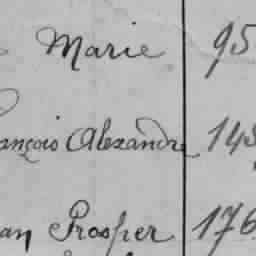 Marie 95
ançois Alexandre 145
an Prosper 176